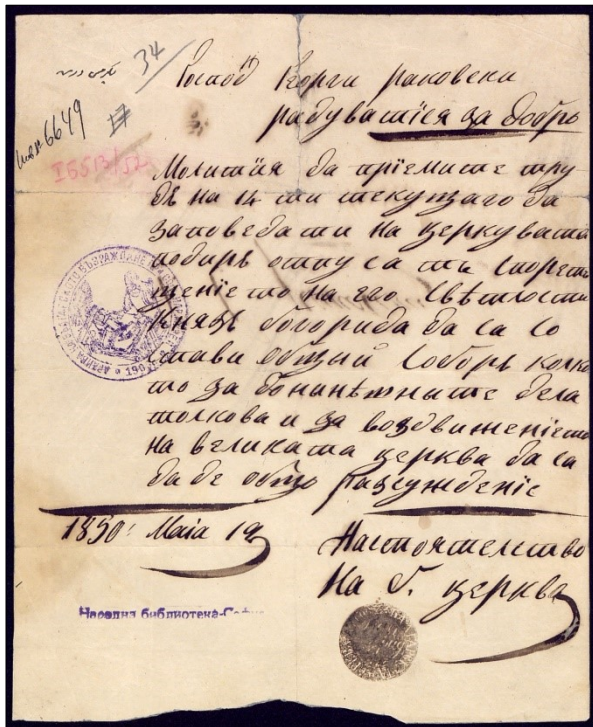 34
Инв № 6649
IБ513/52
Господ҃ Георги раковски
радуватисѧ за добро
Молитїѧ да прїемите тру
дѣ на 14 ти текущаго да
заповедати на церкувата
подирь отпуса та
щенїе то на его свѣтлость
Князь богориди да са со
стави общїй Соборь колк
то за дела
толкова и за воздвиженїето
на великата церква да са
даде общо разсужденїе
1850: Маіа 19
Настоятелство
На б. церква
Народна библиотека-Со